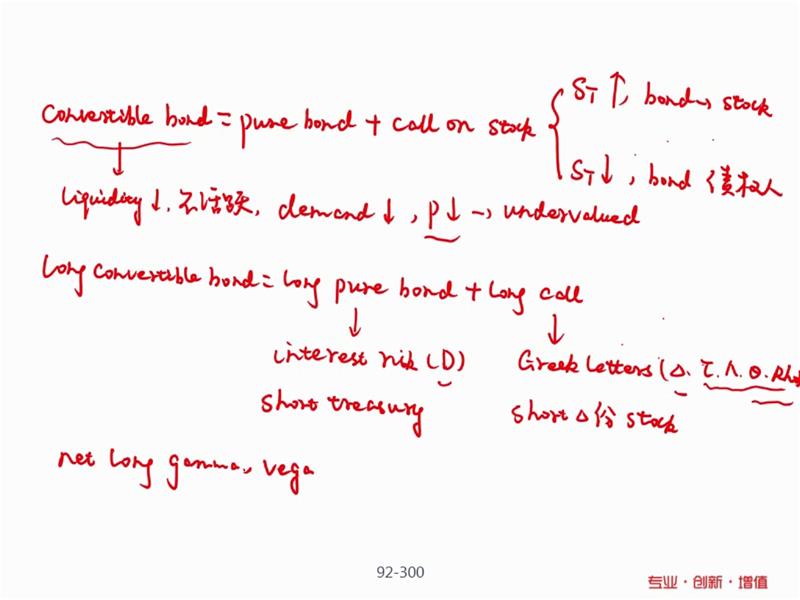 convertible bond = pure bond + call on stock
ST↑, bond→ stock
ST↓, bond 债权人
liquidity↓, 不活跃, demand↓, P↓ → undervalued
long convertible bond = long pure bond + long call
interest risk (D)
Greek letters (Δ. τ. Λ. θ. Rho
short treasury
short Δ份 stock
net long gamma, vega
92-300
专业·创新·增值